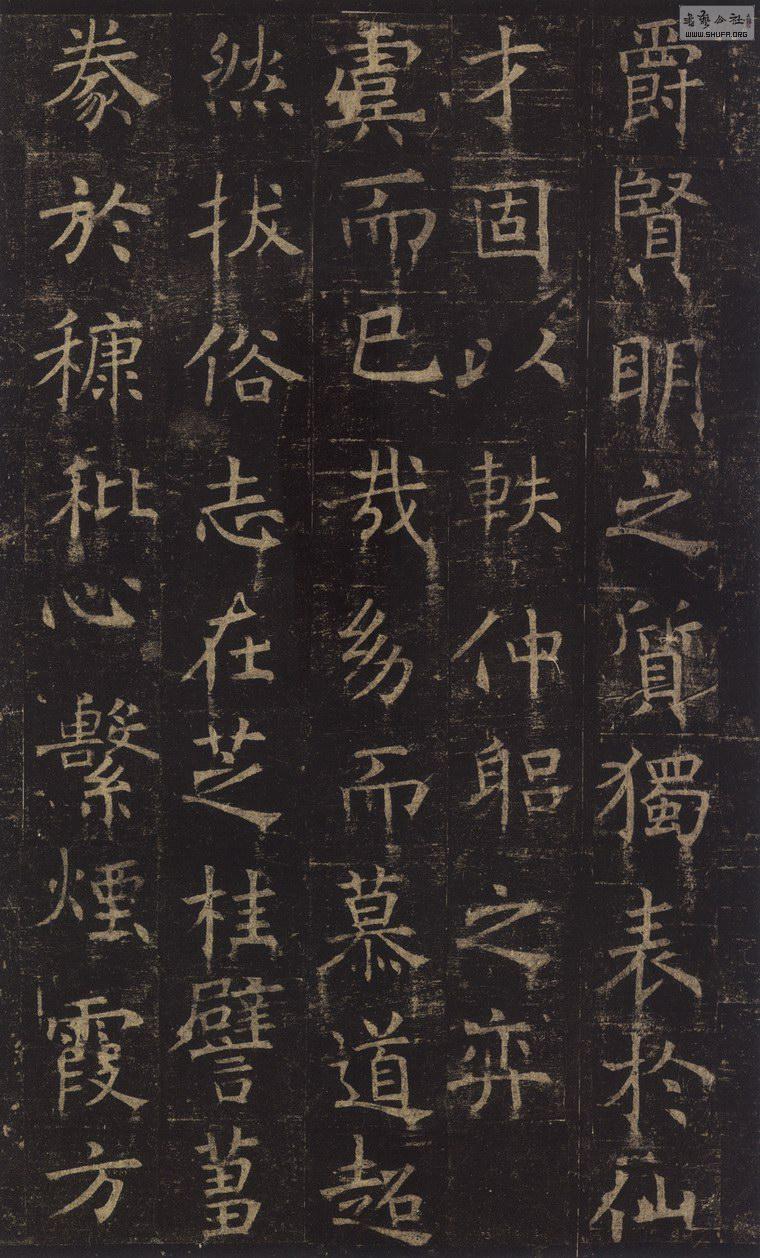 爵賢明之質獨表於仙
才固以軼仲躳之弈
虞而已哉幼而慕道超
然拔俗志在芝桂譬蒭
豢於穅秕心繫煙霞方
書藝公社
WWW.SHUFA.ORG